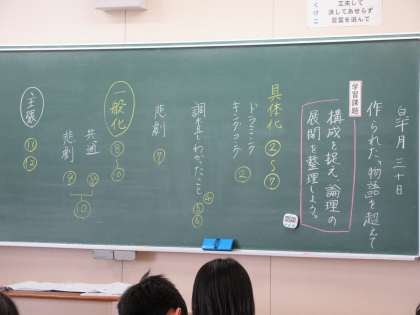 工夫して
決してあせらず
言葉を選んで
作られた「物語」を超えて
学習課題
構成を捉え、論理の
展開を整理しよう。
具体化 ②~⑦
ドラミング
キングコング ②
調査しわかったこと ④
⑤
⑥
悲劇 ⑦
一般化 ⑧
⑩
共通 ⑩
悲劇 ⑨
⑩
主張 ⑪
⑫